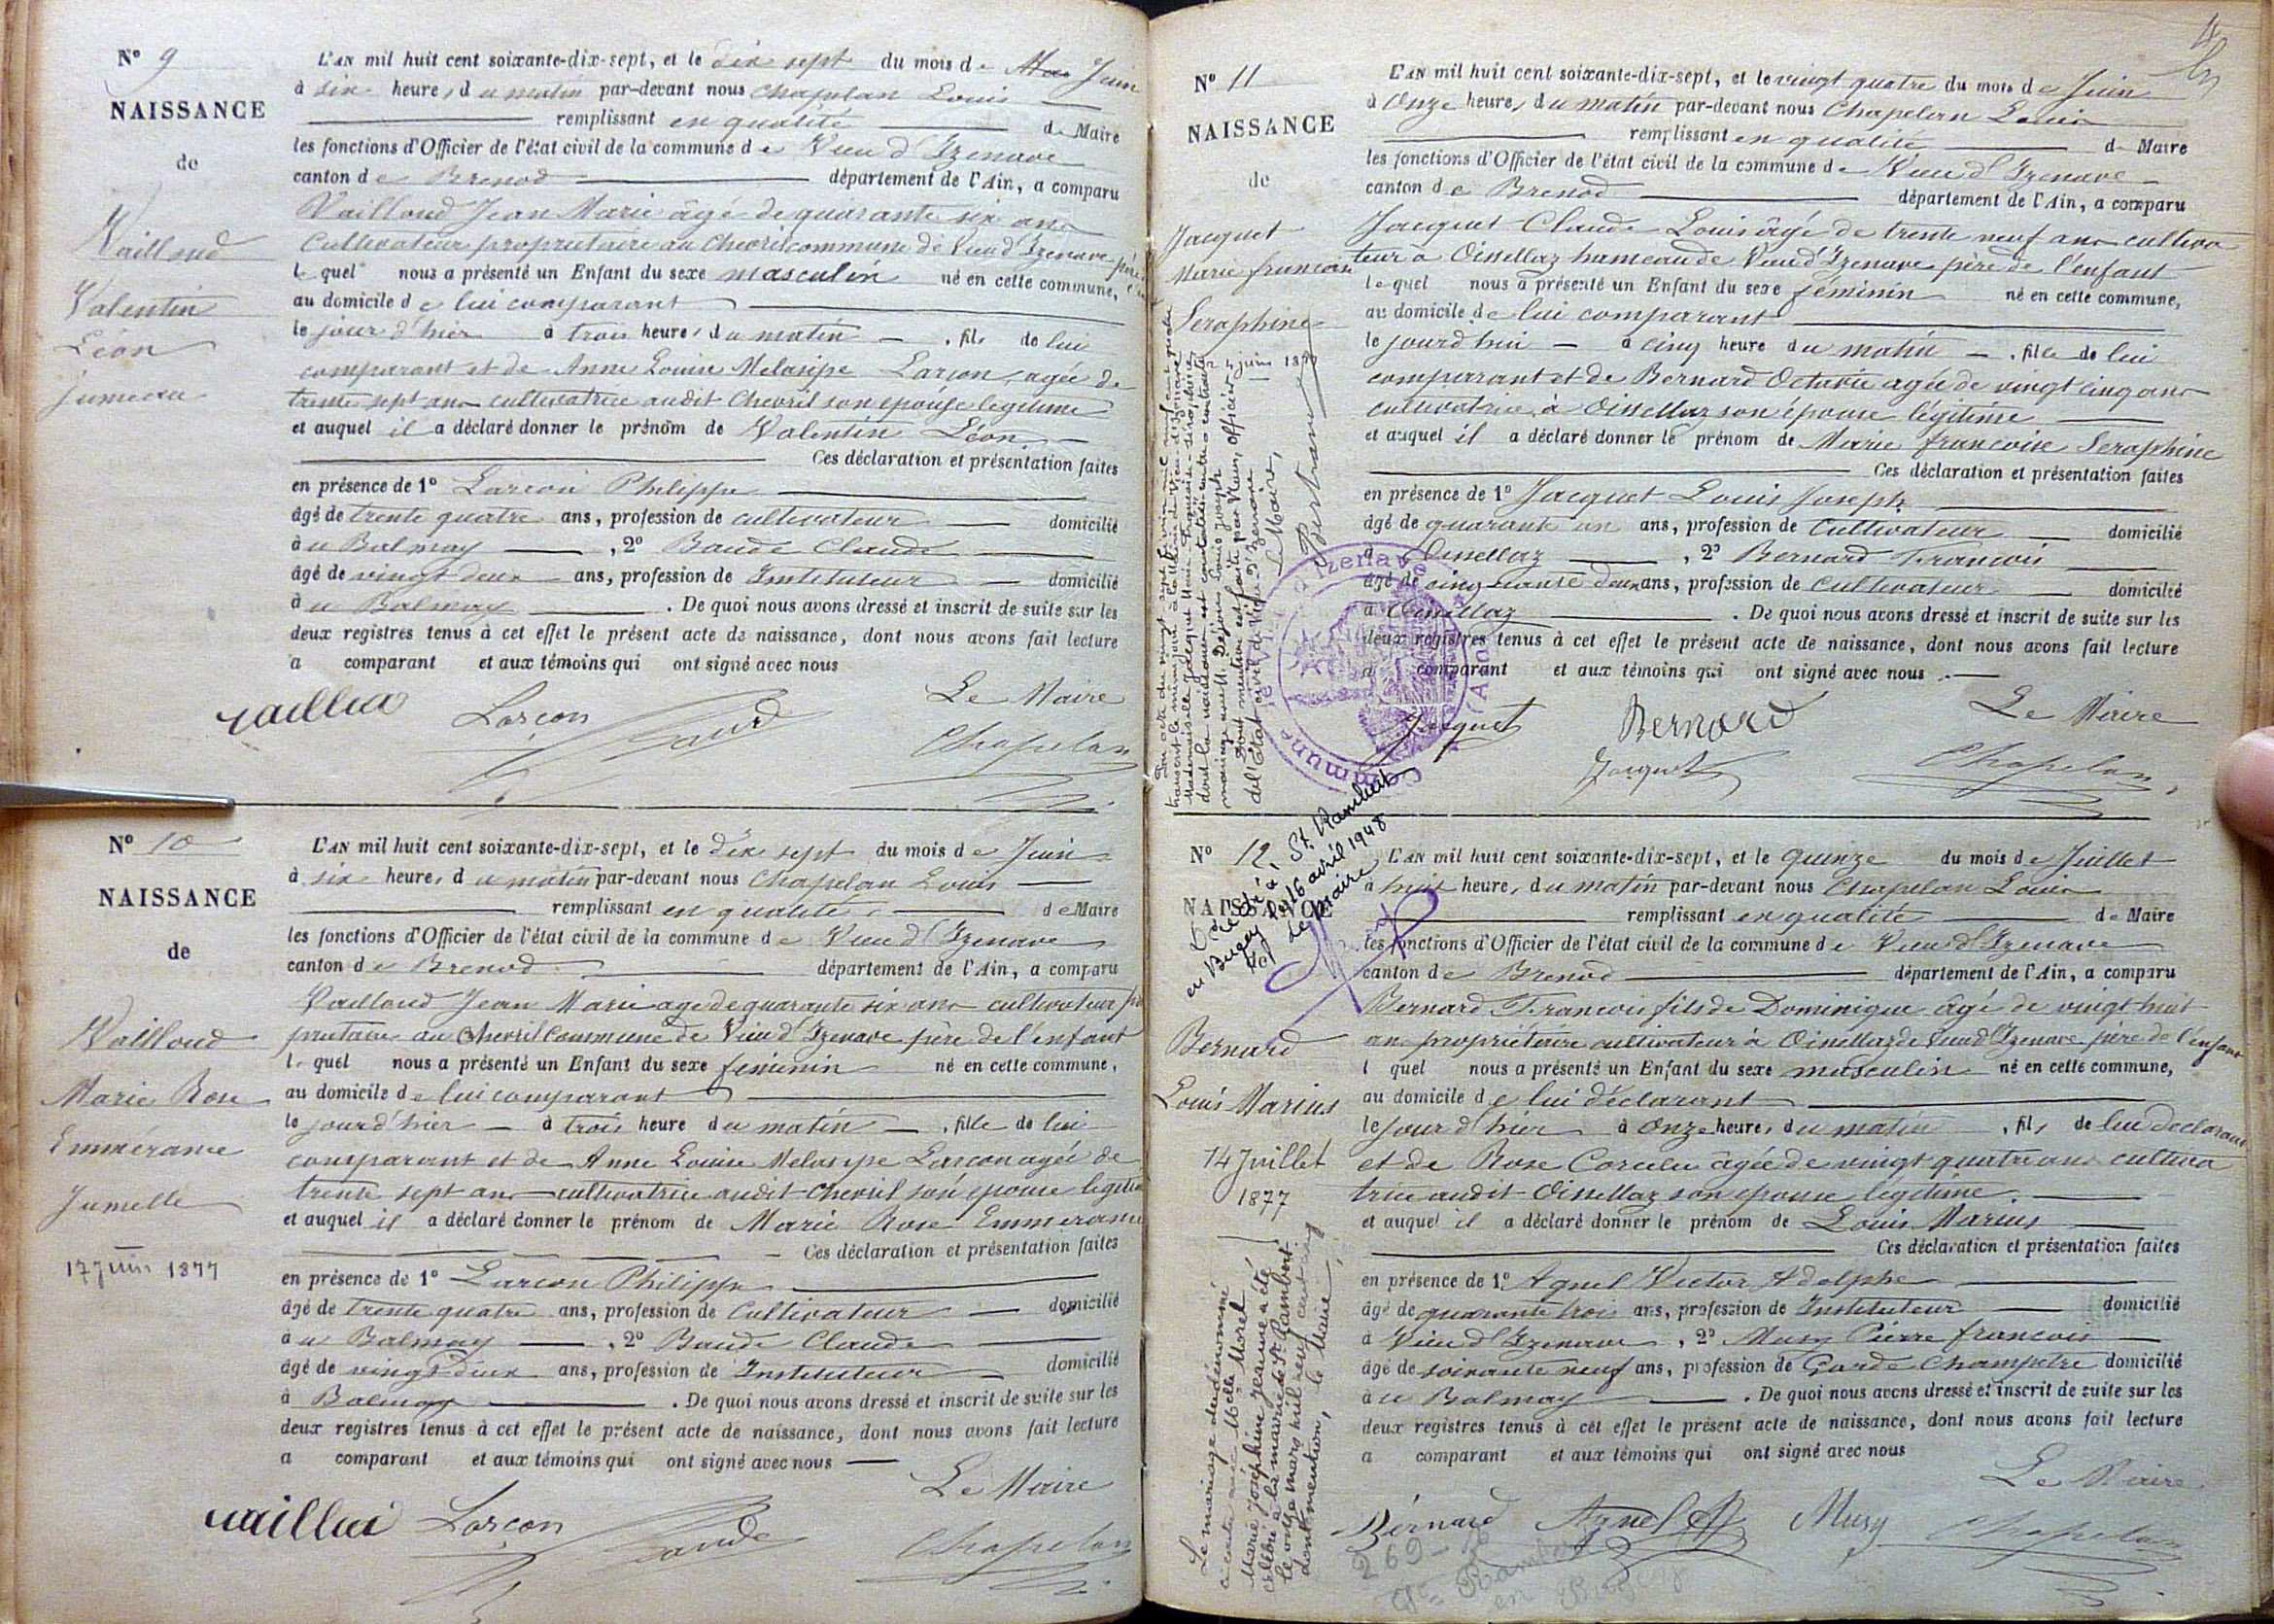 Nº 9
NAISSANCE
de
Vailloud
Valentin
Léon
Jumeau
L'AN mil huit cent soixante-dix-sept, et le dix sept du mois de Juin
à six heures du matin par-devant nous Chapelan Louis
remplissant en qualité de Maire
les fonctions d'Officier de l'état civil de la commune de Vieu d'Izenave
canton de Brenod département de l'Ain, a comparu
Vailloud Jean Marie âgé de quarante six ans
Cultivateur propriétaire au Chevril commune de Vieu d'Izenave père
lequel nous a présenté un Enfant du sexe masculin né en cette commune,
au domicile de lui comparant
le jour d'hier à trois heures du matin, fils de lui
comparant et de Anne Louise Melasipe Larçon, agée de
trente sept ans cultivatrice audit Chevril son épouse légitime
et auquel il a déclaré donner le prénom de Valentin Léon
Ces déclaration et présentation faites
en présence de 1º Larcon Philippe
âgé de trente quatre ans, profession de cultivateur domicilié
à u Balmay, 2º Baude Claude
âgé de vingt deux ans, profession de Instituteur domicilié
à u Balmay. De quoi nous avons dressé et inscrit de suite sur les
deux registres tenus à cet effet le présent acte de naissance, dont nous avons fait lecture
a comparant et aux témoins qui ont signé avec nous
Le Maire
Larcon
Chapelan
Nº 10
NAISSANCE
de
Vailloud
Marie Rose
Emmérance
Jumelle
17 Juin 1877
L'AN mil huit cent soixante-dix-sept, et le dix sept du mois de Juin
à six heures du matin par-devant nous Chapelan Louis
remplissant en qualité de Maire
les fonctions d'Officier de l'état civil de la commune de Vieu d'Izenave
canton de Brenod département de l'Ain, a comparu
Vailloud Jean Marie agé de quarante six ans cultivateur pro
prietaire au Chevril commune de Vieu d'Izenave père de l'enfant
lequel nous a présenté un Enfant du sexe feminin né en cette commune,
au domicile de lui comparant
le jour d'hier à trois heure du matin, fille de lui
comparant et de Anne Louise Melasipe Larcon agée de
trente sept ans cultivatrice audit Chevril son épouse légitime
et auquel il a déclaré donner le prénom de Marie Rose Emmerance
Ces déclaration et présentation faites
en présence de 1º Larcon Philippe
âgé de trente quatre ans, profession de Cultivateur domicilié
à u Balmay, 2º Baude Claude
âgé de vingt deux ans, profession de Instituteur domicilié
à Balmay. De quoi nous avons dressé et inscrit de suite sur les
deux registres tenus à cet effet le présent acte de naissance, dont nous avons fait lecture
a comparant et aux témoins qui ont signé avec nous
Le Maire
Larcon
Baude
Chapelan
Nº 11
NAISSANCE
de
Jacquet
Marie francoise
Seraphine
L'AN mil huit cent soixante-dix-sept, et le vingt quatre du mois de Juin
à Onze heures du matin par-devant nous Chapelan Louis
remplissant en qualité de Maire
les fonctions d'Officier de l'état civil de la commune de Vieu d'Izenave
canton de Brenod département de l'Ain, a comparu
Jacquet Claude Louis âgé de trente neuf ans cultiva
teur à Oisellaz hameau de Vieu d'Izenave père de l'enfant
lequel nous a présenté un Enfant du sexe féminin né en cette commune,
au domicile de lui comparant
le jourd'hui à cinq heure du matin, fille de lui
comparant et de Bernard Octavie agée de vingt cinq ans
cultivatrice à Oisellaz son épouse légitime
et auquel il a déclaré donner le prénom de Marie francoise Seraphine
Ces déclaration et présentation faites
en présence de 1º Jacquet Louis Joseph
âgé de quarante un ans, profession de Cultivateur domicilié
à Oisellaz, 2º Bernard Francois
âgé de cinquante deux ans, profession de Cultivateur domicilié
à Oisellaz. De quoi nous avons dressé et inscrit de suite sur les
deux registres tenus à cet effet le présent acte de naissance, dont nous avons fait lecture
a comparant et aux témoins qui ont signé avec nous
Jacquet
Bernard
Le Maire
Jacquet
Chapelan
Le Maire,
Nº 12
NAISSANCE
St Rambert
en Bugey le 16 avril 1948
le Maire
Bernard
Louis Marius
14 Juillet
1877
Le mariage du dénommé
ci contre avec Melle Morel
Marie Joséphine Jeanne a été
célébré à la mairie de St Rambert
le onze mars mil neuf cent cinq
dont mention, le Maire,
L'AN mil huit cent soixante-dix-sept, et le quinze du mois de Juillet
à huit heures du matin par-devant nous Chapelan Louis
remplissant en qualité de Maire
les fonctions d'Officier de l'état civil de la commune de Vieu d'Izenave
canton de Brenod département de l'Ain, a comparu
Bernard Francois fils de Dominique âgé de vingt huit
ans propriétaire cultivateur à Oisellaz de Vieu d'Izenave père de l'enfant
l quel nous a présenté un Enfant du sexe masculin né en cette commune,
au domicile de lui déclarant
le jour d'hier à Onze heures du matin, fils de lui declarant
et de Rose Corcelu âgée de vingt quatre ans cultiva
trice audit Oisellaz son epouse légitime
et auquel il a déclaré donner le prénom de Louis Marius
Ces déclaration et présentation faites
en présence de 1º Agnel Victor Adolphe
âgé de quarante trois ans, profession de Instituteur domicilié
à Vieu d'Izenave, 2º Musy Pierre francois
âgé de soixante neuf ans, profession de Garde Champetre domicilié
à u Balmay. De quoi nous avons dressé et inscrit de suite sur les
deux registres tenus à cet effet le présent acte de naissance, dont nous avons fait lecture
a comparant et aux témoins qui ont signé avec nous
Le Maire
Bernard
Agnel
Musy
Chapelan